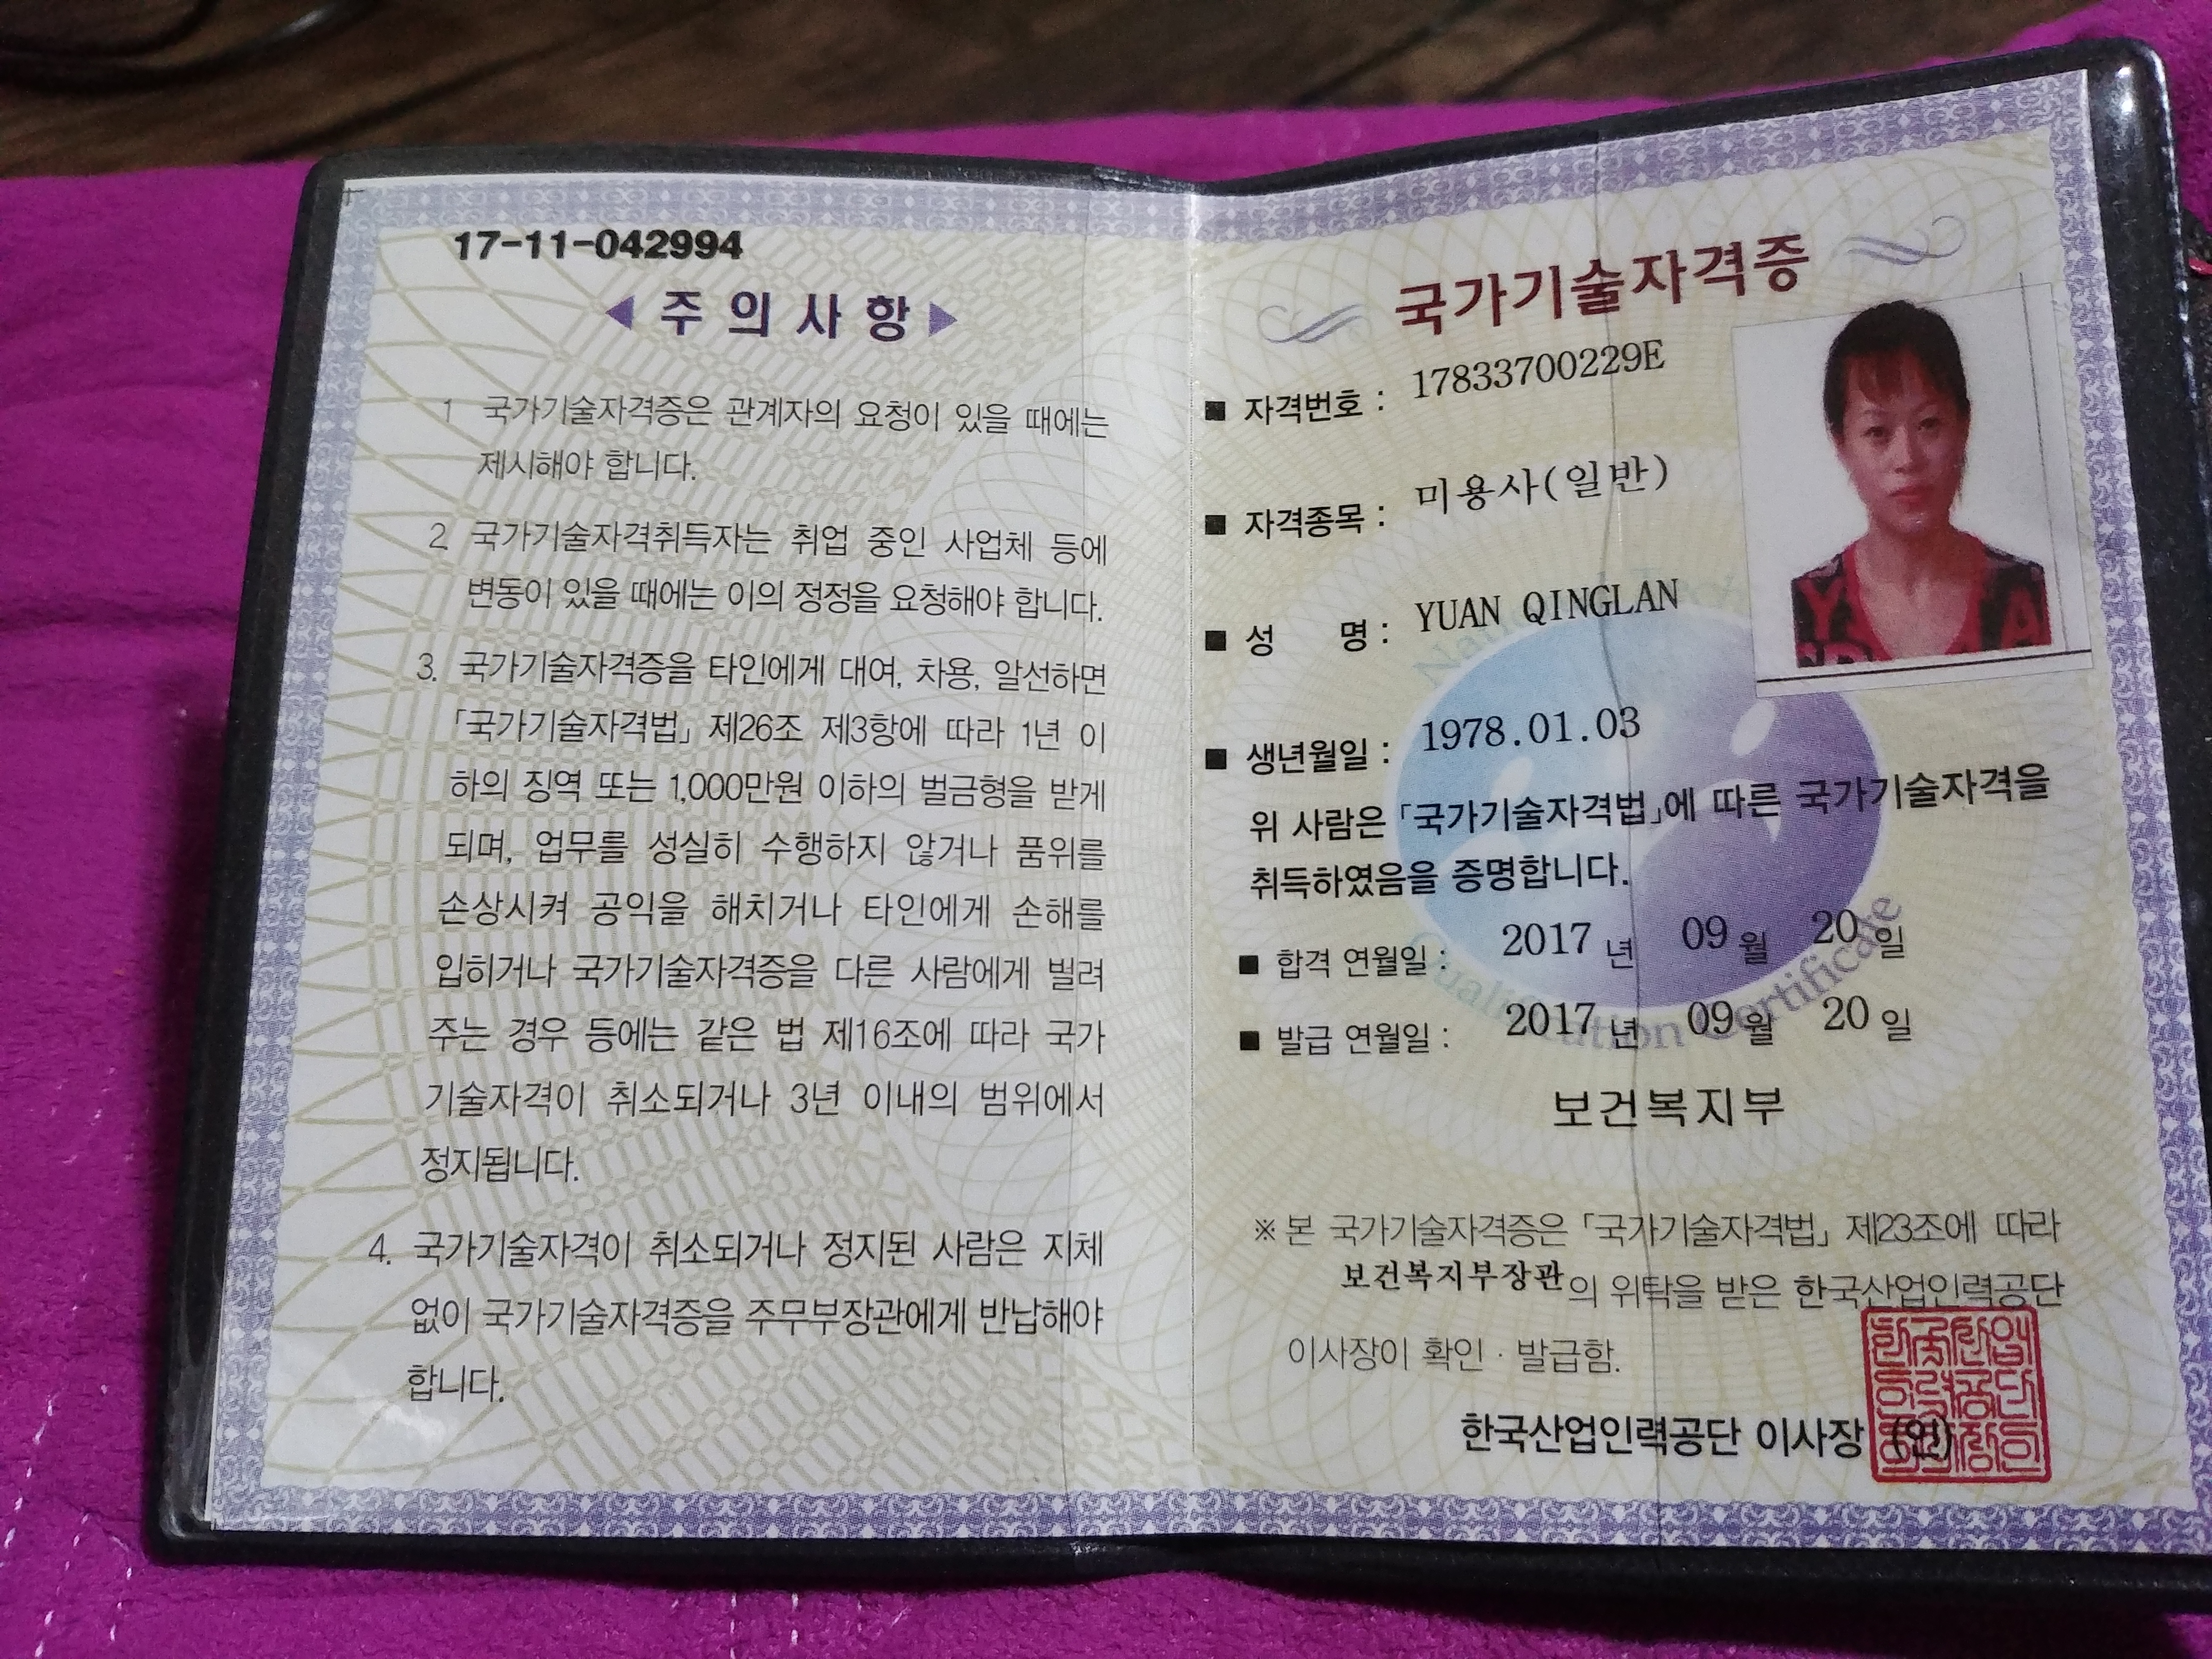 17-11-042994
◀ 주 의 사 항 ▶
1 국가기술자격증은 관계자의 요청이 있을 때에는
제시해야 합니다.
2. 국가기술자격취득자는 취업 중인 사업체 등에
변동이 있을 때에는 이의 정정을 요청해야 합니다.
3. 국가기술자격증을 타인에게 대여, 차용, 알선하면
「국가기술자격법」 제26조 제3항에 따라 1년 이
하의 징역 또는 1,000만원 이하의 벌금형을 받게
되며, 업무를 성실히 수행하지 않거나 품위를
손상시켜 공익을 해치거나 타인에게 손해를
입히거나 국가기술자격증을 다른 사람에게 빌려
주는 경우 등에는 같은 법 제16조에 따라 국가
기술자격이 취소되거나 3년 이내의 범위에서
정지됩니다.
4. 국가기술자격이 취소되거나 정지된 사람은 지체
없이 국가기술자격증을 주무부장관에게 반납해야
합니다.
국가기술자격증
■ 자격번호 : 17833700229E
■ 자격종목 : 미용사(일반)
■ 성 명 : YUAN QINGLAN
■ 생년월일 : 1978.01.03
위 사람은 「국가기술자격법」에 따른 국가기술자격을
취득하였음을 증명합니다.
■ 합격 연월일 : 2017 년 09 월 20 일
■ 발급 연월일 : 2017 년 09 월 20 일
보건복지부
※ 본 국가기술자격증은 「국가기술자격법」 제23조에 따라
보건복지부장관의 위탁을 받은 한국산업인력공단
이사장이 확인 · 발급함.
한국산업인력공단 이사장 (인)